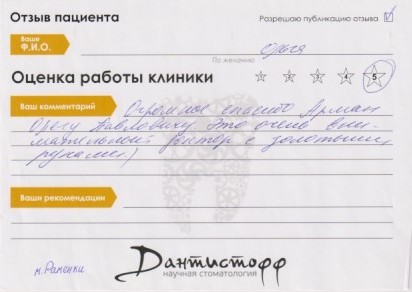 Отзыв пациента
Разрешаю публикацию отзыва
Ваше
Ф.И.О.
По желанию
Ольга
Оценка работы клиники
1 2 3 4 5
Ваш комментарий
Огромное спасибо Арман
Олегу Павловичу это очень вни-
мательный доктор с золотыми
руками)
Ваши рекомендации
Дантистофф
научная стоматология
м. Раменки